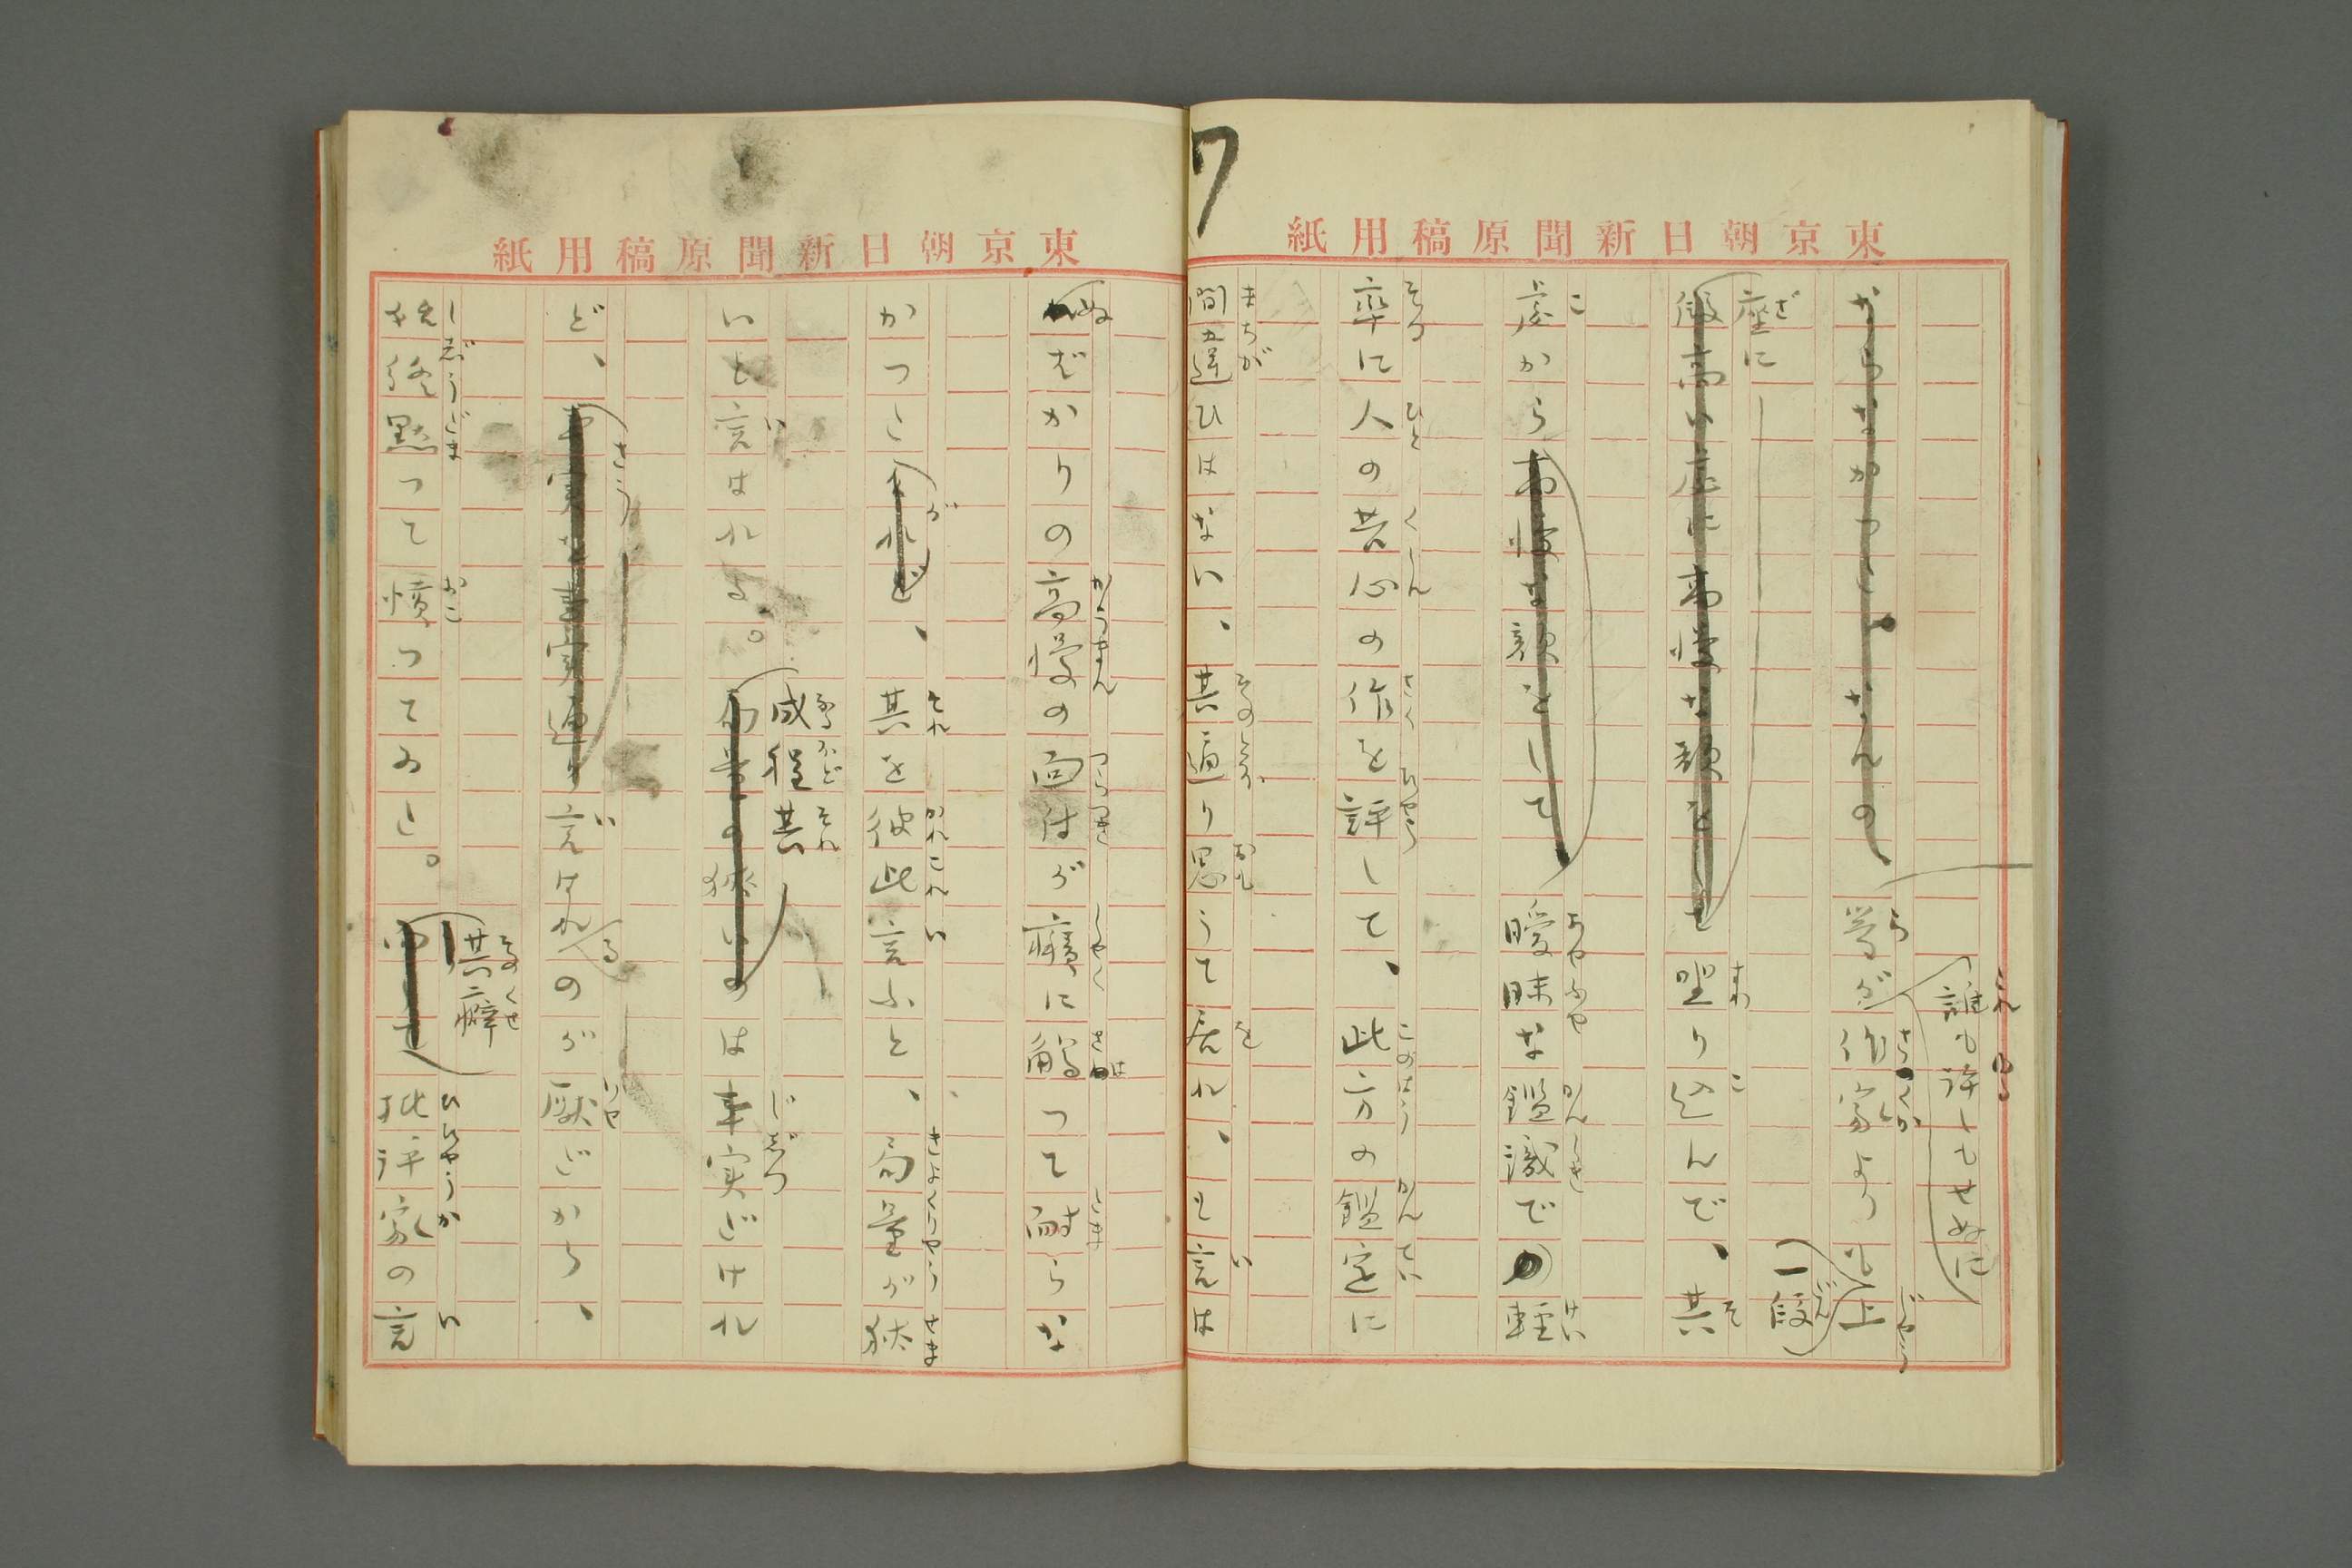 東京朝日新聞原稿用紙
誰も許しもせぬに
ならなかつた。なんの
等が作家より上
一段
座に
段高い座に高慢な顔をして坐り込んで、其
処から高慢な顔をして曖昧な鑑識での軽
卒に人の苦心の作を評して、此方の鑑定に
間違ひはない、其通り思うて居れ、と言は
7
東京朝日新聞原稿用紙
ぬばかりの高慢の面付が癪に触つて耐らな
かつたけれど、其を彼此言ふと、局量が狭
が
いと言はれる。
成程其
は事実だけれ
ど、
さう
言はれのが厭だから、
る
始終黙つて憤つてゐた。
其癖
批評家の言